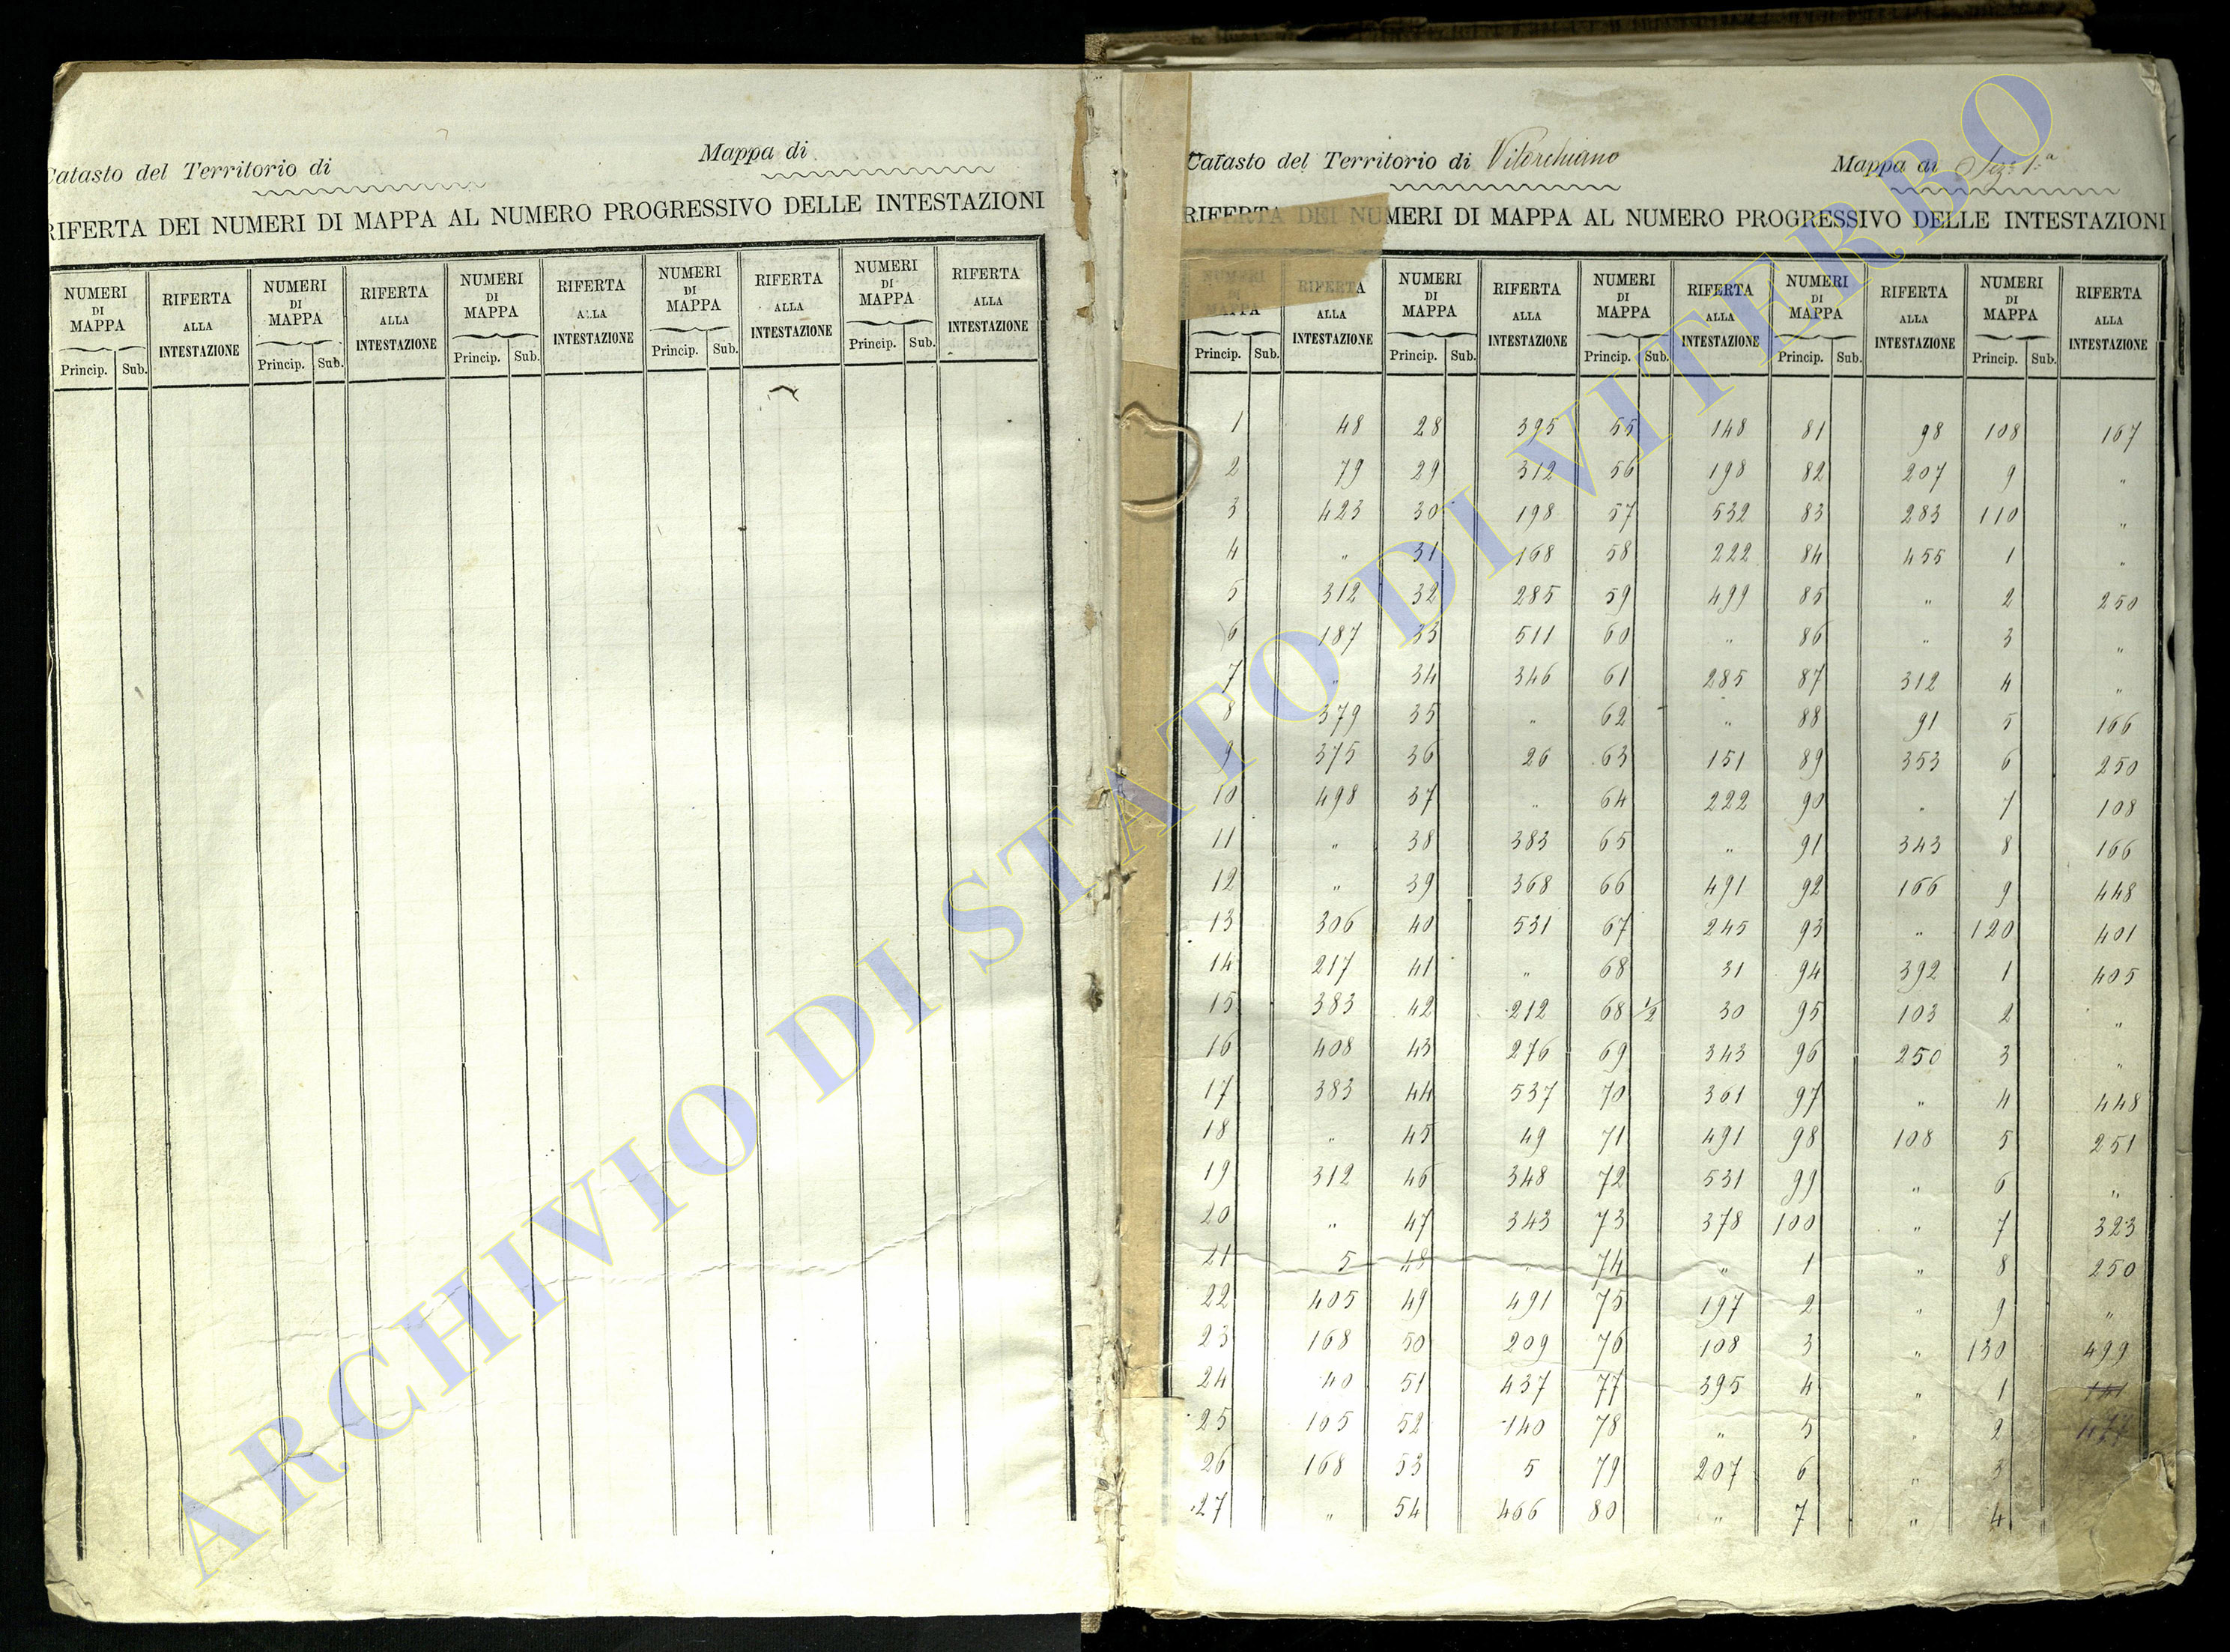 Catasto del Territorio di
Mappa di
RIFERTA DEI NUMERI DI MAPPA AL NUMERO PROGRESSIVO DELLE INTESTAZIONI
NUMERI DI MAPPA RIFERTA ALLA INTESTAZIONE NUMERI DI MAPPA RIFERTA ALLA INTESTAZIONE NUMERI DI MAPPA RIFERTA ALLA INTESTAZIONE NUMERI DI MAPPA RIFERTA ALLA INTESTAZIONE NUMERI DI MAPPA RIFERTA ALLA INTESTAZIONE
Princip. Sub. Princip. Sub. Princip. Sub. Princip. Sub. Princip. Sub.
Catasto del Territorio di Vitorchiano Mappa di Sez. 1.a
RIFERTA DEI NUMERI DI MAPPA AL NUMERO PROGRESSIVO DELLE INTESTAZIONI
NUMERI DI MAPPA RIFERTA ALLA INTESTAZIONE NUMERI DI MAPPA RIFERTA ALLA INTESTAZIONE NUMERI DI MAPPA RIFERTA ALLA INTESTAZIONE NUMERI DI MAPPA RIFERTA ALLA INTESTAZIONE NUMERI DI MAPPA RIFERTA ALLA INTESTAZIONE
Princip. Sub. Princip. Sub. Princip. Sub. Princip. Sub. Princip. Sub.
1 48 28 395 55 148 81 98 108 167
2 79 29 312 56 198 82 207 9 "
3 423 30 198 57 532 83 283 110 "
4 " 31 168 58 222 84 455 1 "
5 312 32 285 59 499 85 " 2 250
6 187 33 511 60 " 86 " 3 "
7 " 34 346 61 285 87 312 4 "
8 379 35 " 62 " 88 91 5 166
9 375 36 26 63 151 89 353 6 250
10 498 37 " 64 222 90 " 7 108
11 " 38 383 65 " 91 343 8 166
12 " 39 368 66 491 92 166 9 448
13 306 40 531 67 245 93 " 120 401
14 217 41 " 68 31 94 392 1 405
15 383 42 212 68 1/2 30 95 103 2 "
16 408 43 276 69 343 96 250 3 "
17 383 44 537 70 361 97 " 4 448
18 " 45 49 71 491 98 108 5 251
19 312 46 348 72 531 99 " 6 "
20 " 47 343 73 378 100 " 7 323
21 5 48 " 74 " 1 " 8 250
22 405 49 491 75 197 2 " 9 "
23 168 50 209 76 108 3 " 130 499
24 40 51 437 77 395 4 " 1
25 105 52 140 78 " 5 " 2
26 168 53 5 79 207 6 " 3
27 " 54 466 80 " 7 " 4
ARCHIVIO DI STATO DI VITERBO